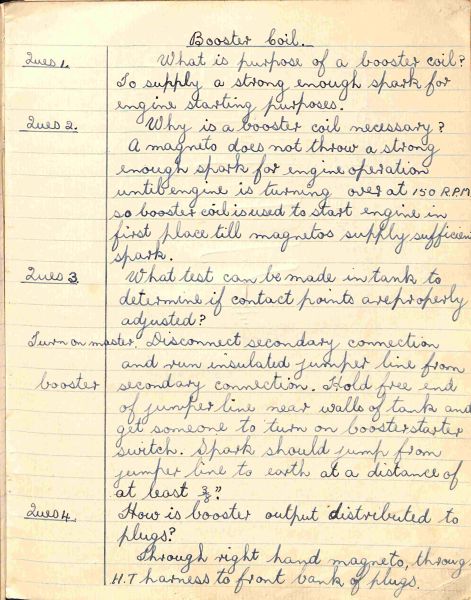 Booster Coil.
Ques 1. What is purpose of a booster coil?
To supply a strong enough spark for
engine starting purposes.
Ques 2. Why is a booster coil necessary?
A magneto does not throw a strong
enough spark for engine operation
until engine is turning over at 150 RPM
so booster coil is used to start engine in
first place till magnetos supply sufficien
spark.
Ques 3. What test can be made in tank to
determine if contact points are properly
adjusted?
Turn on master. Disconnect secondary connection
and run insulated jumper line from
booster secondary connection. Hold free end
of jumper line near walls of tank and
get someone to turn on booster starter
switch. Spark should jump from
jumper line to earth at a distance of
at least 3/8".
Ques 4. How is booster output distributed to
plugs?
Through right hand magneto, throug
H.T harness to front bank of plugs.